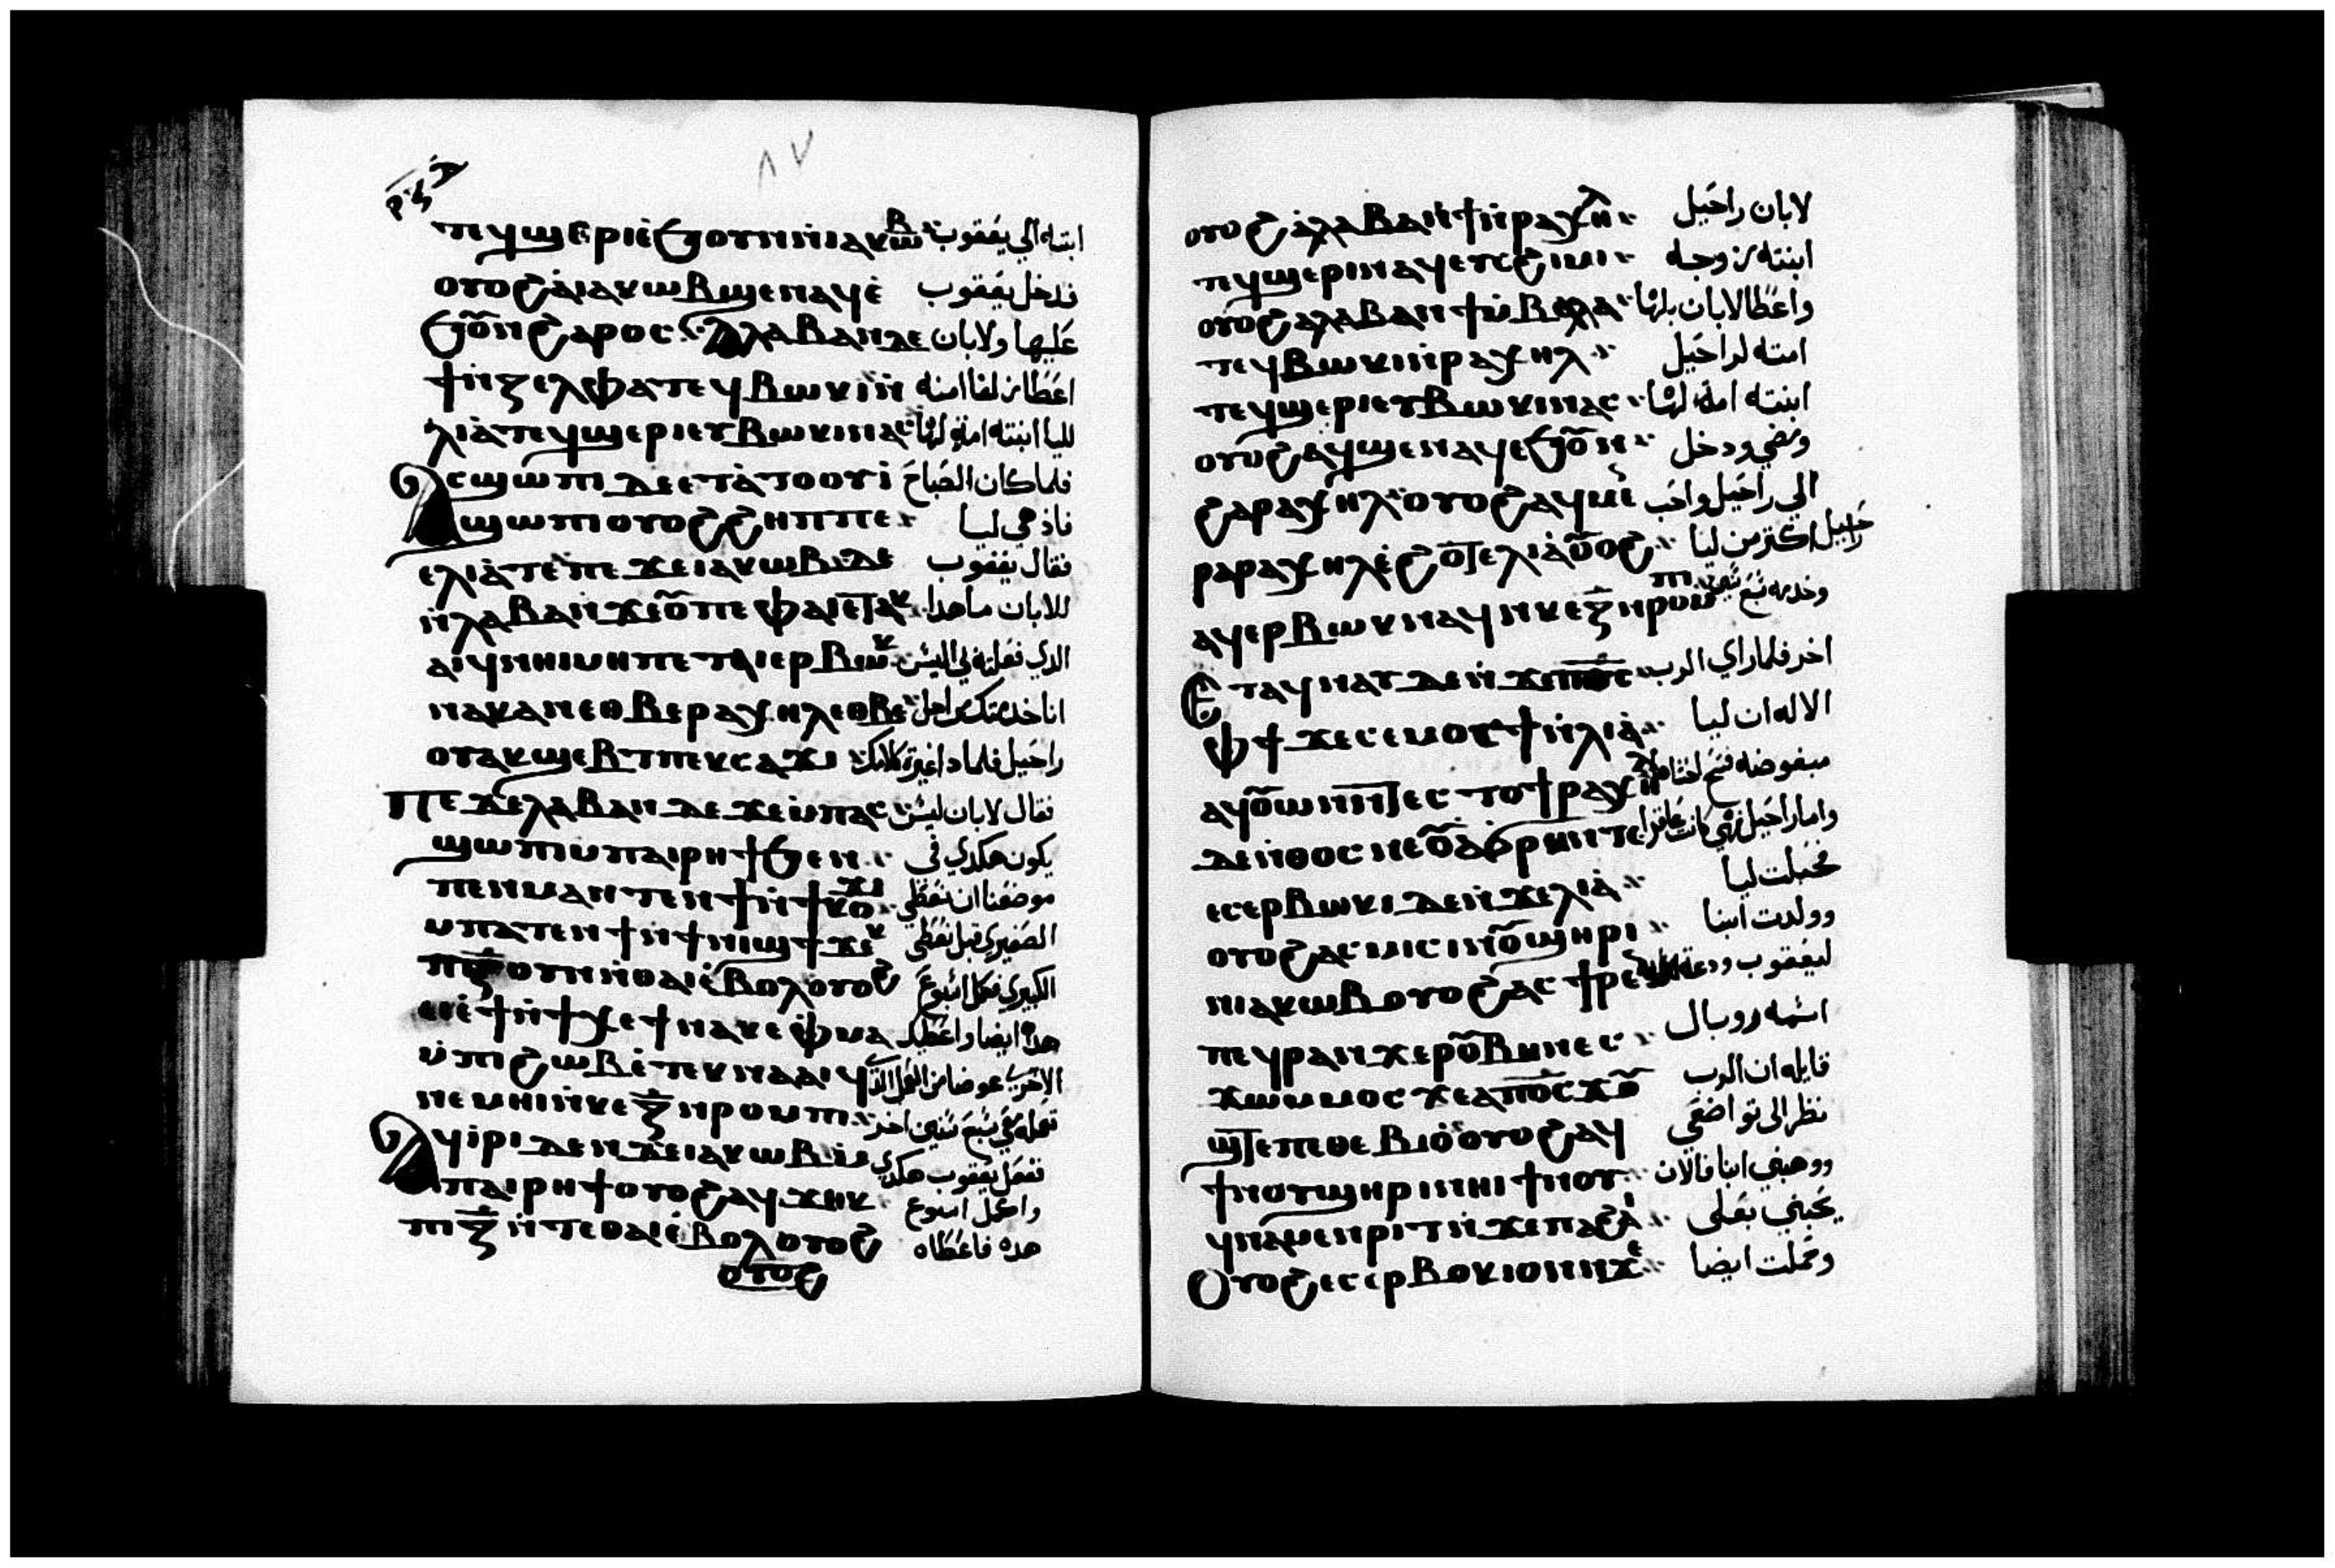 ⲣⲕⲍ
٨٧
ⲡⲉϥϣⲉⲣⲓ ⲉ̀ϧⲟⲩⲛ ⲛ̀ⲓⲁⲕⲱⲃ ابنته الي يعقوب
ⲟⲩⲟϩ ⲁ̀ⲓⲁⲕⲱⲃ ϣⲉⲛⲁϥ ⲉ̀ فدخل يعقوب
ϧⲟⲩⲛ ϩⲁⲣⲟⲥ ⲗⲁⲃⲁⲛ ⲇⲉ عليها ولابان
ϯ ⲛ̀ⲍⲉⲗⲫⲁ ⲧⲉϥⲃⲱⲕⲓ ⲛ̀ اعطا زلفا امته
ⲗⲓⲁ̀ ⲧⲉϥϣⲉⲣⲓ ⲉⲩⲃⲱⲕⲓ ⲛⲁⲥ لليا ابنته امة لها
ⲁⲥϣⲱⲡⲓ ⲇⲉ ⲉⲧⲁ̀ ⲧⲟⲟⲩⲓ̀ فلما كان الصباح
ϣⲱⲡⲓ ⲟⲩⲟϩ ϩⲏⲡⲡⲉ فاذ هي ليا
ⲉⲗⲓⲁ̀ ⲧⲉ ⲡⲉϫⲉ ⲓⲁⲕⲱⲃ ⲇⲉ فقال يعقوب
ⲛ̀ⲗⲁⲃⲁⲛ ϫⲉ ⲟⲩ ⲡⲉ ⲫⲁⲓ ⲉⲧⲁⲕ للابان ما هدا
ⲁⲓϥ ⲛⲏⲓ ⲙⲏ ⲡⲉⲧⲁⲓⲉⲣⲃⲱⲕ الدي فعلته بي اليس
ⲛⲁⲕ ⲁⲛ ⲉⲑⲃⲉ ⲣⲁⲭⲏⲗ ⲉⲑⲃⲉ انا خدمتك من اجل
ⲟⲩ ⲁⲕϣⲉⲃⲧ ⲡⲉⲕⲥⲁϫⲓ راحيل فلمادا غيرة كلامك
ⲡⲉϫⲉ ⲗⲁⲃⲁⲛ ⲇⲉ ϫⲉ ⲙ̀ⲡⲁⲥ فقال لابان ليس
ϣⲱⲡⲓ ⲙ̀ⲡⲁⲓⲣⲏϯ ϧⲉⲛ يكون هكدي في
ⲡⲉⲛⲙⲁ ⲁⲛ ⲧⲉⲛϯ ⲛ̀ϯⲕⲟⲩϫⲓ موضعنا ان نعطي
ⲙⲡⲁⲧⲉⲛϯ ⲛ̀ϯⲛⲓϣϯ ϫⲉⲕ الصغيري قبل نعطي
ⲡⲓⲍ ⲟⲩⲛ ⲛ̀ⲑⲁⲓ ⲉ̀ⲃⲟⲗ ⲟⲩⲟϩ الكبيري فكمل اسبوع
ⲉⲓⲉ̀ϯ ⲛ̀ϯⲭⲉϯ ⲛⲁⲕ ⲉⲫⲙⲁ هده ايضا واعطيك
ⲙ̀ⲡⲓϩⲱⲃ ⲉ̀ⲧⲉⲕⲛⲁⲁⲓϥ الاخري عوضا من العمل الذي
ⲛⲉⲙⲏⲓ ⲛ̀ⲕⲉⲍ ⲛ̀ⲣⲟⲙⲡⲓ تعمله معي سبع سنين اخر
ⲁϥⲓ̀ⲣⲓ ⲇⲉ ⲛ̀ϫⲉ ⲓⲁⲕⲱⲃ ⲙ̀ ففعل يعقوب هكدي
ⲡⲁⲓⲣⲏϯ ⲟⲩⲟϩ ⲁϥϫⲏⲕ واكمل اسبوع
ⲡⲓⲍ ⲛ̀ⲧⲉ ⲑⲁⲓ ⲉ̀ⲃⲟⲗ ⲟⲩⲟϩ هده فاعطاه
ⲟⲩⲟϩ
ⲟⲩⲟϩ ⲁ̀ⲗⲁⲃⲁⲛ ϯ ⲛ̀ⲣⲁⲭⲏⲗ لابان راحيل
ⲧⲉϥϣⲉⲣⲓ ⲛⲁϥ ⲉⲩⲥϩⲓⲙⲓ ابنته زوجه
ⲟⲩⲟϩ ⲁⲗⲁⲃⲁⲛ ϯ ⲙ̀ⲃⲁⲗⲗⲁ واعطا لابان بلها
ⲧⲉϥⲃⲱⲕⲓ ⲛ̀ⲣⲁⲭⲏⲗ امته لراحيل
ⲧⲉϥϣⲉⲣⲓ ⲉⲩⲃⲱⲕⲓ ⲛⲁⲥ ابنته امة لها
ⲟⲩⲟϩ ⲁϥϣⲉⲛⲁϥ ⲉϧⲟⲩⲛ ومضي ودخل
ϩⲁ ⲣⲁⲭⲏⲗ ⲟⲩⲟϩ ⲁϥⲙⲉⲓ الي راحيل واحب
ⲣⲁⲣⲁⲭⲏⲗ ⲉ̀ϩⲟⲧⲉ ⲗⲓⲁ̀ ⲟⲩⲟϩ راحيل اكتر من ليا
ⲁϥⲉⲣⲃⲱⲕ ⲛⲁϥ ⲛⲕⲉⲍ ⲛⲣⲟⲙⲡⲓ وخدمه سبع سنين
ⲉⲧⲁϥⲛⲁⲩ ⲇⲉ ⲛ̀ϫⲉ ⲡⲟⲥ اخر فلما راي الرب
ⲫϯ ϫⲉ ⲥⲉⲙⲟⲥϯ ⲛ̀ⲗⲓⲁ̀ الاله ان ليا
ⲁϥⲟⲩⲱⲛ ⲛ̀ⲧⲉⲥⲧⲟϯ ⲣⲁⲭⲏⲗ مبغوضه فتح احشاها
ⲇⲉ ⲛ̀ⲑⲟⲥ ⲛⲉ ⲟⲩⲁϭⲣⲏⲛ ⲧⲉ واما راحيل فهي كانت عاقرا
ⲉⲥⲉⲣⲃⲱⲕⲓ ⲇⲉ ⲛ̀ϫⲉ ⲗⲓⲁ̀ فحبلت ليا
ⲟⲩⲟϩ ⲁⲥⲙⲓⲥⲓ ⲛⲟⲩϣⲏⲣⲓ وولدت ابنا
ⲛⲓⲁⲕⲱⲃ ⲟⲩⲟϩ ⲁⲥϯⲣⲉⲛ ليعقوب ودعة
ⲡⲉϥⲣⲁⲛ ϫⲉ ⲣⲟⲩⲃⲏⲛ ⲉⲥ اسمه روبال
ϫⲱⲙⲙⲟⲥ ϫⲉ ⲁⲡⲟⲥ ϫⲟⲩ قايله ان الرب
ϣⲧ ⲉⲡⲉⲑⲉⲃⲓⲟ̀ ⲟⲩⲟϩ ⲁϥ نظر الى تواضعي
ϯ ⲛⲟⲩϣⲏⲣⲓ ⲛⲏⲓ ϯⲛⲟⲩ ووهبني ابنا فالان
ϥⲛⲁⲙⲉⲛⲣⲓⲧ ⲛ̀ϫⲉ ⲡⲁϩⲁⲓ يحبني بعلى
ⲟⲩⲟϩ ⲉⲥⲉⲣⲃⲟⲕⲓ ⲟⲛ ⲛϫⲉ وحملت ايضا